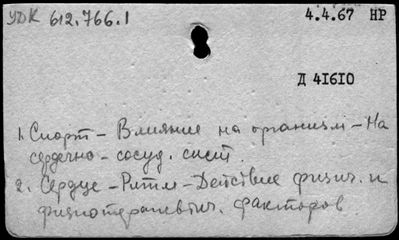 УДК 612.766.1
4.4.67 НР
Д 41610
1. Спорт – Влияние на организм – На
сердечно-сосуд. сист.
2. Сердце – Ритм – Действие физич. и
физиотерапевтич. факторов